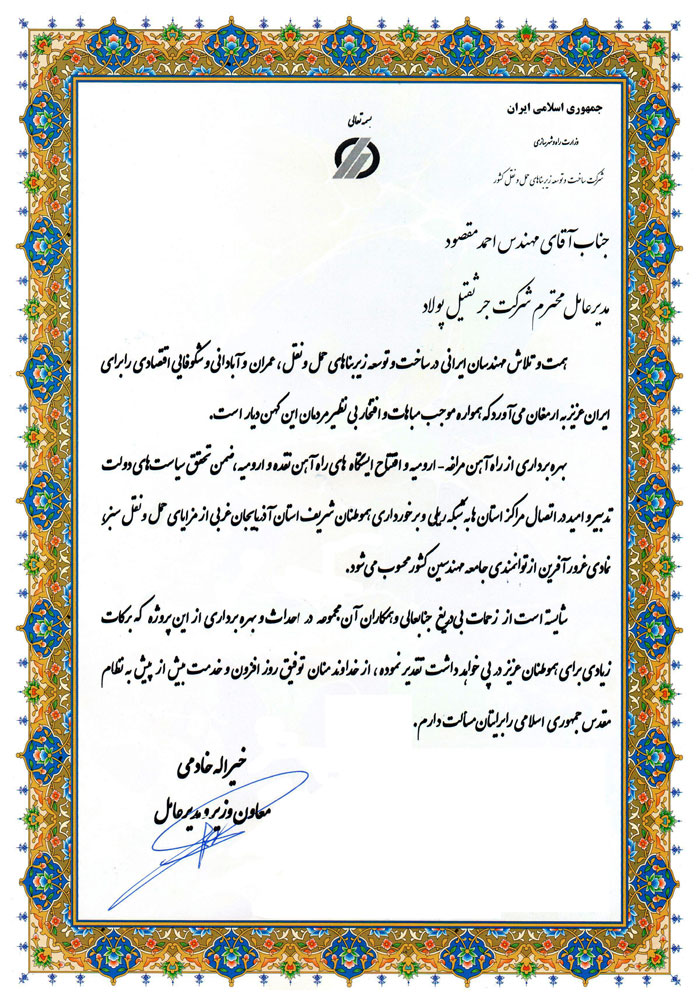 جمهوری اسلامی ایران
بسمه تعالی
وزارت راه و شهرسازی
شرکت ساخت و توسعه زیربناهای حمل و نقل کشور
جناب آقای مهندس احمد مقصود
مدیر عامل محترم شرکت جرثقیل پولاد
همت و تلاش مهندسان ایرانی در ساخت و توسعه زیربناهای حمل و نقل، عمران و آبادانی و شکوفایی اقتصادی را برای
ایران عزیز به ارمغان می‌آورد که همواره موجب مباهات و افتخار بی نظیر مردمان این کهن دیار است.
بهره برداری از راه آهن مراغه - ارومیه و افتتاح ایستگاه های راه آهن نقده و ارومیه، ضمن تحقق سیاست‌های دولت
تدبیر و امید در اتصال مراکز استان ها به شبکه ریلی و برخورداری هموطنان شریف استان آذربایجان غربی از مزایای حمل و نقل سبز،
نمادی غرور آفرین از توانمندی جامعه مهندسین کشور محسوب می‌شود.
شایسته است از زحمات بی‌دریغ جنابعالی و همکاران آن مجموعه در احداث و بهره برداری از این پروژه که برکات
زیادی برای هموطنان عزیز در پی خواهد داشت تقدیر نموده، از خداوند منان توفیق روز افزون و خدمت بیش از پیش به نظام
مقدس جمهوری اسلامی را برایتان مسالت دارم.
خیراله خادمی
معاون وزیر و مدیر عامل